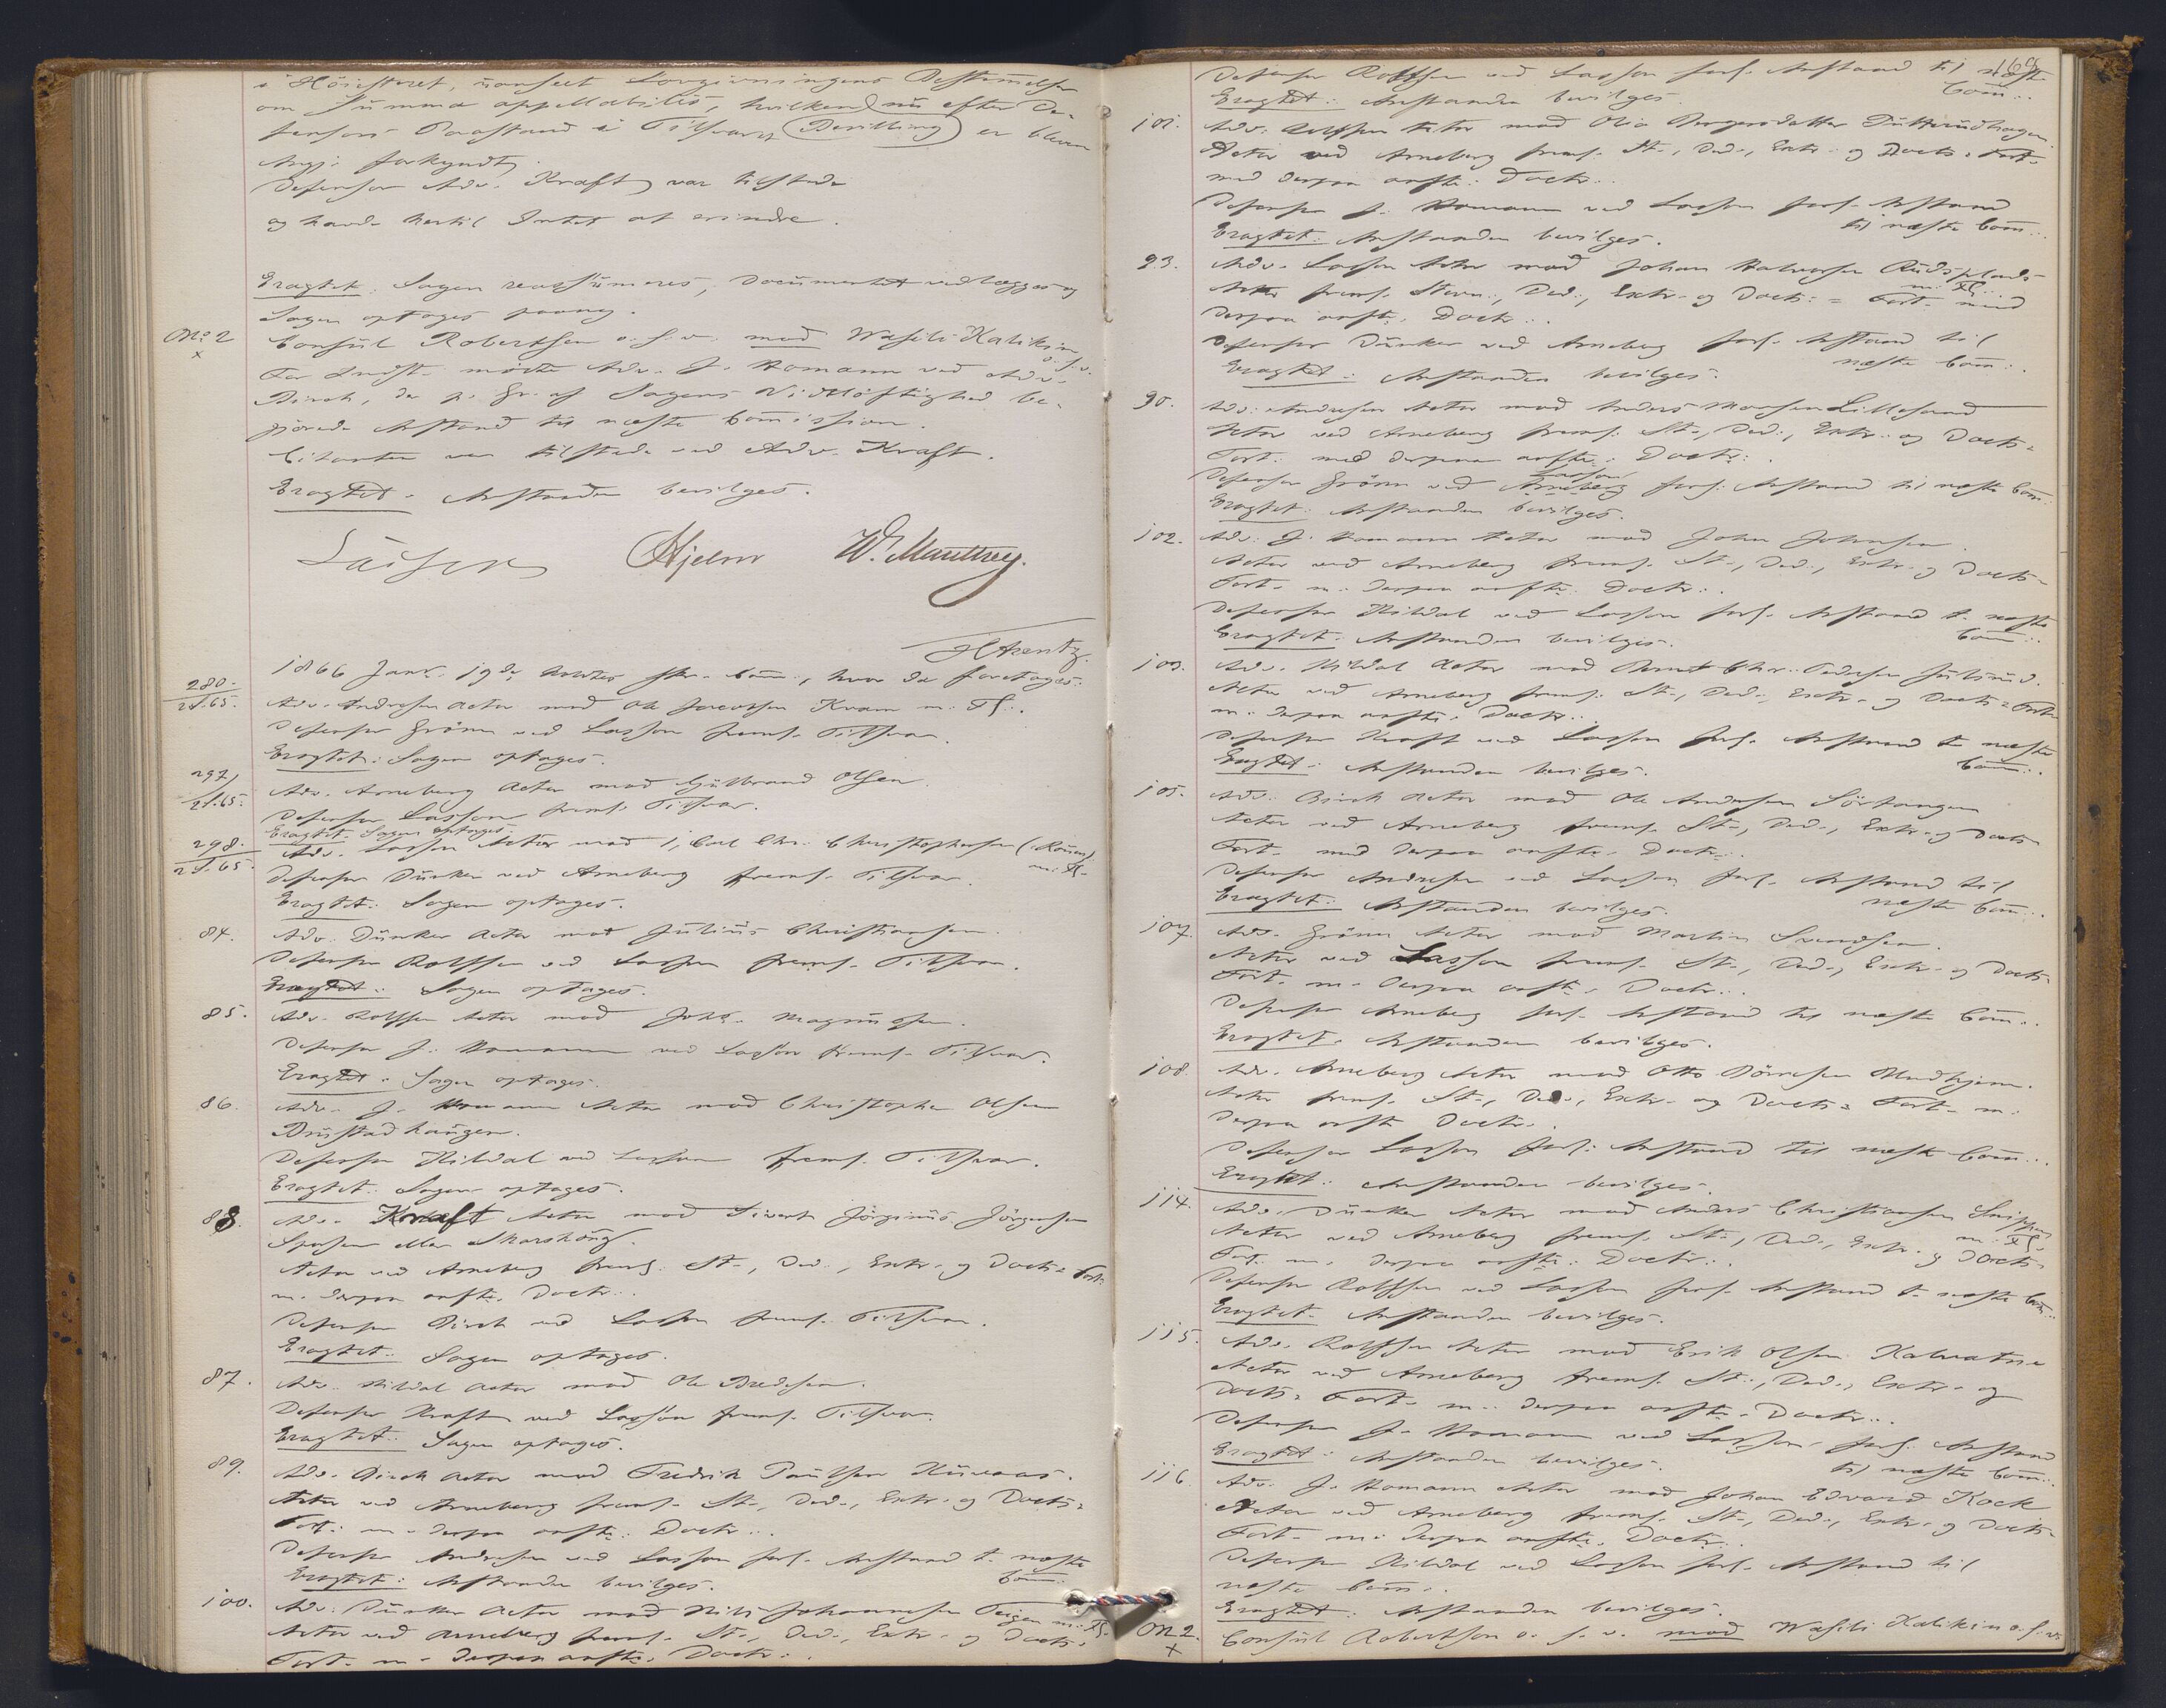 i Høiesteret, uanseet Lovgivningens Bestemmelser
om summa appellabilis, hvilken nu efter De-
fensors Paastand i Tilsvaret (Bevilling) er bleven
forkyndt.
Defensor Adv. Kraft var tilstede
og havde hertil Intet at erindre.
Eragtet: Sagen reassümeres, Documentet vedlægges og
Sagen optages paany.
No 2
x
Consül Robertson o. s. v. mod Wasili Kalikin
o. s. v.
For Indst. mødte Adv. J. Homann ved Adv.
Birch, der p. Gr. af Sagens Vidtløftighed be-
gjærede Anstand til næste Com̄ission.
Citanten var tilstede ved Adv. Kraft.
Eragtet: Anstanden bevilges.
Lasson Hjelm W. Manthey.
H Arentz.
1866 Janr. 19de holdtes Com̄:, hvor da foretages:
280.
2S.65.
Adv. Andresen Actor mod Ole Jacobsen Kvam m. Fl:.
Defensor Grönn ved Lasson frems. Tilsvar.
Eragtet: Sagen optages.
297,
2S.65.
Adv. Arneberg Actor mod Gülbrand Olsen
Defensor Lasson frems. Tilsvar.
Eragtet: Sagen optages.
298.
2S.65.
Adv. Lasson Actor mod 1, Carl Chr. Christophersen
m. Fl.
Defensor Dünker ved Arneberg frems. Tilsvar.
Eragtet: Sagen optages.
84.
Adv. Dünker Actor mod Jülius Christiansen.
Defensor Rolfsen ved Lasson frems. Tilsvar.
Eragtet: Sagen optages.
85.
Adv. Rolfsen Actor mod Johs. Magnüssen.
Defensor J. Homann ved Lasson frems. Tilsvar.
Eragtet: Sagen optages.
86.
Adv. J. Homann Actor mod Christopher Olsen
Brüstadhaugen.
Defensor Hildal ved Lasson frems. Tilsvar.
Eragtet: Sagen optages.
88
Adv. Kraft Actor mod Sivert Jörginüs Jörgensen
eller
Actor ved Arneberg frems. St., Ded., Extr. og Docts = Fort.
m. derpaa anfte. Doctr..
Defensor Birch ved Lasson frems. Tilsvar.
Eragtet: Sagen optages.
87.
Adv. Hildal Actor mod Ole Bredesen.
Defensor Kraft ved Lasson frems. Tilsvar.
Eragtet: Sagen optages.
89.
Adv. Birch Actor mod Fredrik Paülsen
Actor ved Arneberg frems. St., Ded., Extr. og Docts =
Fort. m. derpaa anfte. Doctr..
Defensor Andresen ved Lasson forl. Anstand t. næste
Com̄:.
Eragtet: Anstanden bevilges.
100.
Adv. Dünker Actor mod Nils Johannesen Teigen m. Fl.
Actor ved Arneberg frems. St., Ded., Extr. og Docts =
Fort. m. derpaa anfte. Doctr..
Defensor Rolfsen ved Lasson forl. Anstand til næste
Com̄:.
Eragtet: Anstanden bevilges.
101.
Adv. Rolfsen Actor mod Olia
Actor ved Arneberg frems. St., Ded., Extr. og Docts = Fort.
med derpaa anfte. Doctr..
Defensor J. Homann ved Lasson forl. Anstand
til næste Com̄:.
Eragtet: Anstanden bevilges.
93.
Adv. Lasson Actor mod Johan Halvorsen Rüdsplads
m. Fl:.
Actor frems. Stevn., Ded., Extr. og Docts = Fort. med
derpaa anfte. Doctr..
Defensor Dünker ved Arneberg forl. Anstand til
næste Com̄:.
Eragtet: Anstanden bevilges.
90.
Adv. Andresen Actor mod Anders Monsen Lillesand
Actor ved Arneberg frems. St., Ded., Extr. og Docts =
Fort. med derpaa anfte. Doctr.
Defensor Grönn ved Arneberg Lasson forl. Anstand til næste Com̄:.
Eragtet: Anstanden bevilges.
102.
Adv. J. Homann Actor mod John Johnsen.
Actor ved Arneberg frems. St., Ded., Extr. og Docts =
Fort. m. derpaa anfte. Doctr..
Defensor Hildal ved Lasson forl. Anstand t. næste
Com̄:.
Eragtet: Anstanden bevilges.
103.
Adv. Hildal Actor mod Bernt Chr. Pedersen
Actor ved Arneberg frems. St., Ded., Extr. og Docts = Fort.
m. derpaa anfte. Doctr..
Defensor Kraft ved Lasson forl. Anstand t. næste
Com̄:.
Eragtet: Anstanden bevilges.
105.
Adv. Birch Actor mod Ole Andersen Sörtangen
Actor ved Arneberg frems. St., Ded., Extr. og Docts =
Fort. med derpaa anfte. Doctr..
Defensor Andresen ved Lasson forl. Anstand til
næste Com̄:.
Eragtet: Anstanden bevilges.
107.
Adv. Grönn Actor mod Martin Svendsen.
Actor ved Lasson frems. St., Ded., Extr. og Docts =
Fort. m. derpaa anfte. Doctr..
Defensor Arneberg forl. Anstand til næste Com̄:.
Eragtet: Anstanden bevilges.
108.
Adv. Arneberg Actor mod Otto
Actor frems. St., Ded., Extr. og Docts = Fort. m.
derpaa anfte Doctr..
Defensor Lasson forl. Anstand til næste Com̄:.
Eragtet: Anstanden bevilges.
114.
Adv. Dünker Actor mod Anders Christiansen
m. Fl.
Actor ved Arneberg frems. St., Ded., Extr. og Docts =
Fort. m. derpaa anfte. Doctr..
Defensor Rolfsen ved Lasson forl. Anstand t. næste Com̄:.
Eragtet: Anstanden bevilges.
115.
Adv. Rolfsen Actor mod Erik Olsen Kalvatne
Actor ved Arneberg frems. St., Ded., Extr. og
Docts = Fort. m. derpaa anfte. Doctr..
Defensor J. Homann ved Lasson forl. Anstand
til næste Com̄:.
Eragtet: Anstanden bevilges.
116.
Adv. J. Homann Actor mod Johan Edvard Kock
Actor ved Arneberg frems. St., Ded., Extr. og Docts =
Fort. m. derpaa anfte. Doctr..
Defensor Hildal ved Lasson forl. Anstand til
næste Com̄:.
Eragtet: Anstanden bevilges.
No 2.
x
Consül Robertson o. s. v. mod Wasili Kalikin o. s. v.